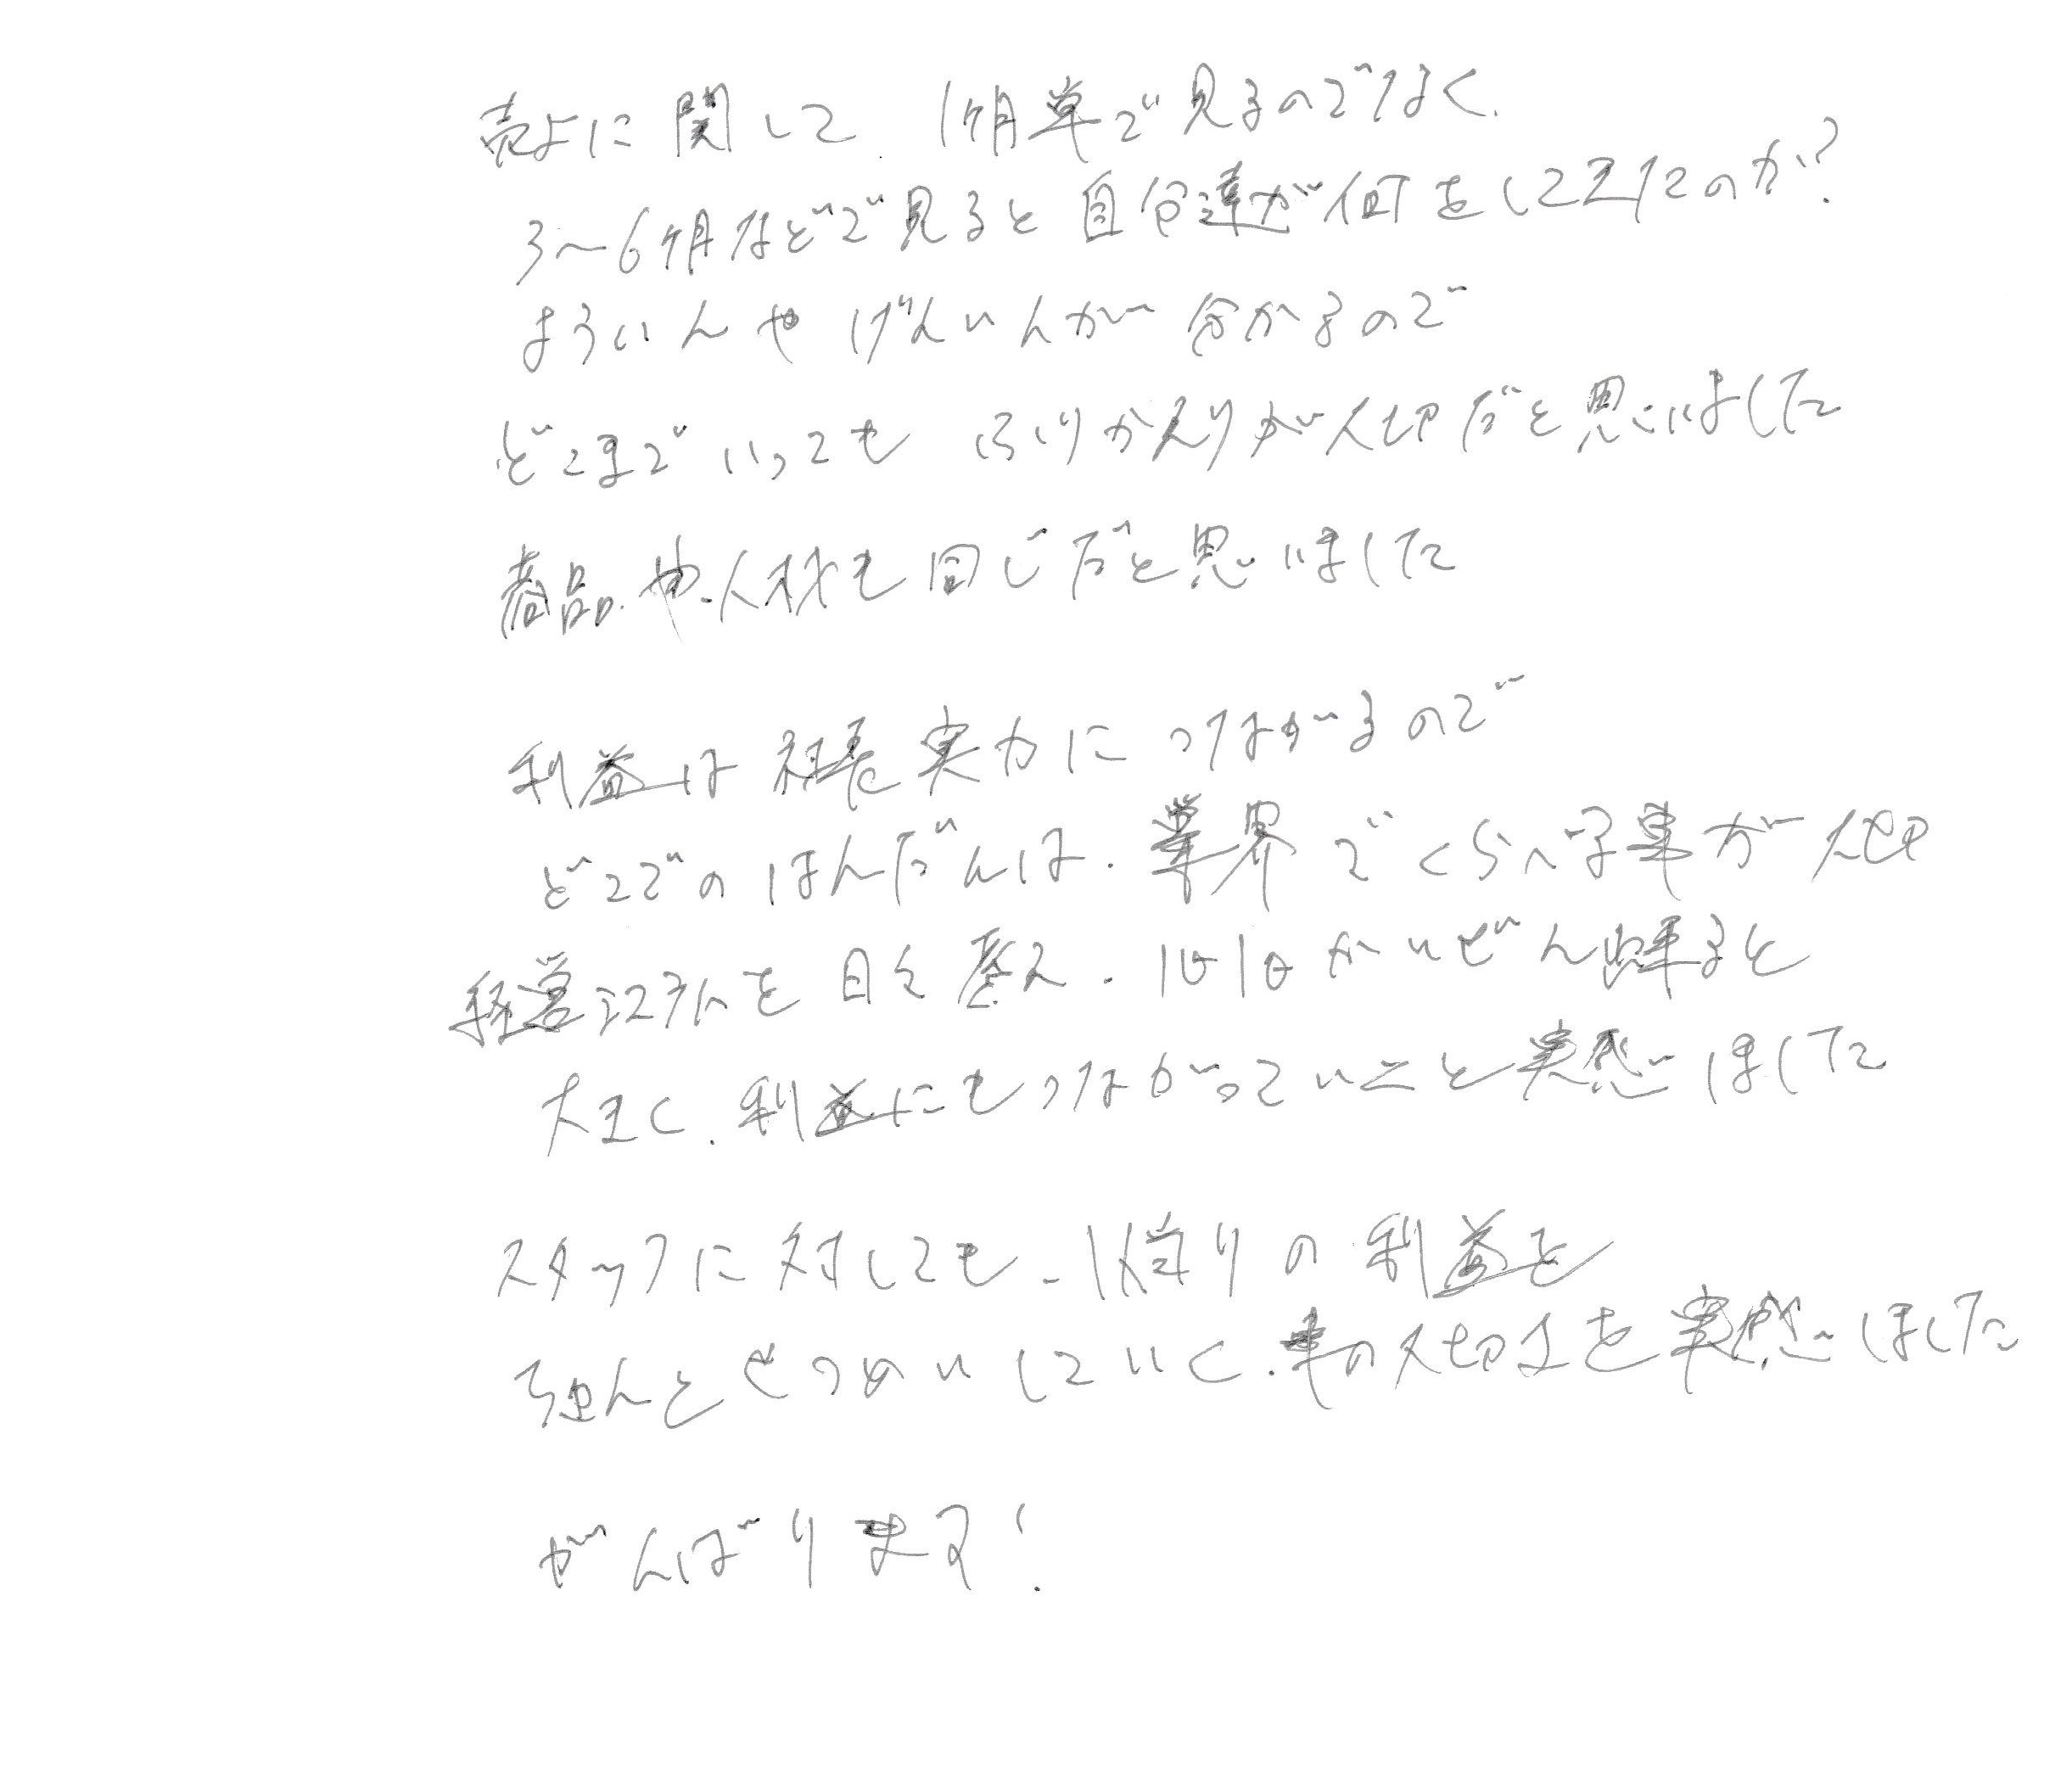 売上に関して、1ヶ月単で見るのでなく、
3〜6ヶ月などで見ると自分達が何をしてきたのか?
よういんやげんいんが分かるので
どこまでいってもふりかえりが大切だと思いました
商品や人材も同じだと思いました
利益は社長実力につながるので
どこでのはんだんは、業界でくらべる事が大切
経営を日々 1日1日かいぜん出来ると
大きく、利益にもつながっていこと実感しました
スタッフに対しても、1人当りの利益を
ちゃんとせつめいしていく、事の大切さを実感しました
がんばります!